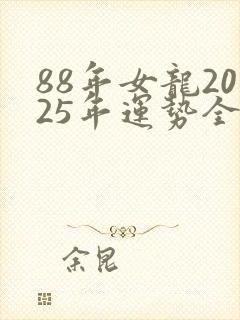 88年女龍20
25年運勢全
余昆